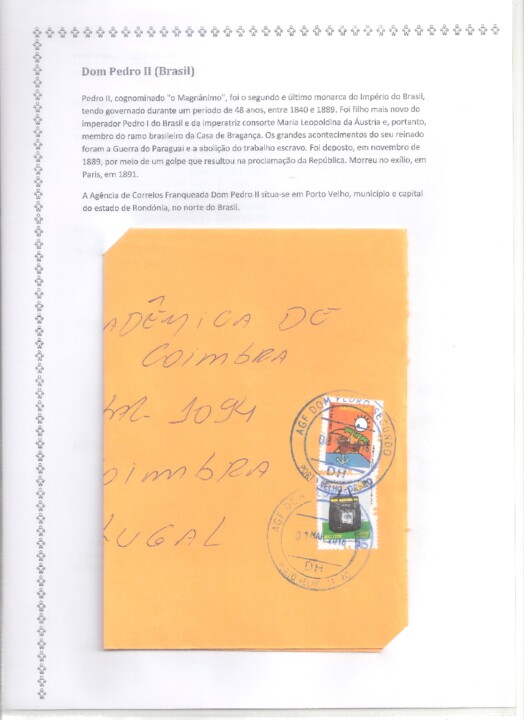 Dom Pedro II (Brasil)
Pedro II, cognominado "o Magnânimo", foi o segundo e último monarca do Império do Brasil,
tendo governado durante um período de 48 anos, entre 1840 e 1889. Foi filho mais novo do
imperador Pedro I do Brasil e da imperatriz consorte Maria Leopoldina da Áustria e, portanto,
membro do ramo brasileiro da Casa de Bragança. Os grandes acontecimentos do seu reinado
foram a Guerra do Paraguai e a abolição do trabalho escravo. Foi deposto, em novembro de
1889, por meio de um golpe que resultou na proclamação da República. Morreu no exílio, em
Paris, em 1891.
A Agência de Correios Franqueada Dom Pedro II situa-se em Porto Velho, município e capital
do estado de Rondónia, no norte do Brasil.
ADÊMICA DE
COIMBRA
1094
OIMBRA
UGAL
AGF DOM PEDRO SEGUNDO
DH
PORTO VELHO
AGF DOM
MAR 2016
DH